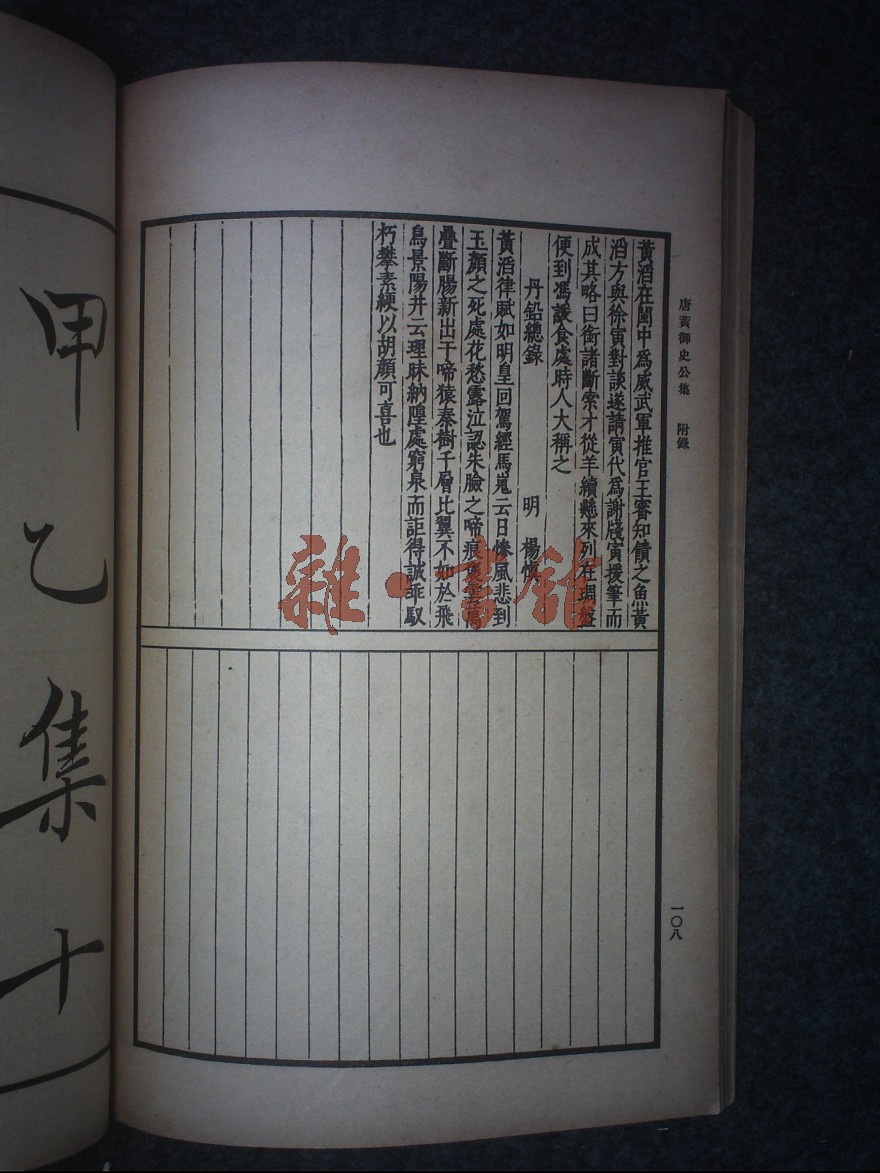 唐黃御史公集 附錄
黃滔在閩中爲威武軍推官王審知饋之魚黃
滔方與徐寅對談遂請寅代爲謝牋寅援筆而
成其略曰銜諸斷索才從羊續懸來列在琱盤
便到馮諼食處時人大稱之
丹鉛總錄 明 楊慎
黃滔律賦如明皇回駕經馬嵬云日慘風悲到
玉顏之死處花愁露泣認朱臉之啼痕褒雲萬
疊斷腸新出于啼猿秦樹千層比翼不如於飛
鳥景陽井云理昧納隍處窮泉而詎得誠乖馭
朽攀素綆以胡顏可喜也
一〇八
甲乙集十
雜·書舘